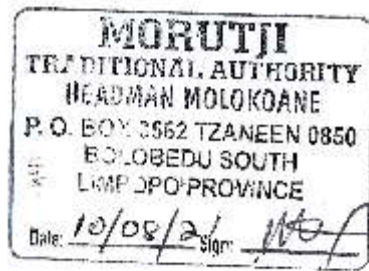 MORUTJI
TRADITIONAL AUTHORITY
HEADMAN MOLOKOANE
P. O. BOX 3562 TZANEEN 0850
BOLOBEDU SOUTH
LIMPOPO PROVINCE
Date: 10/08/21 Sign: